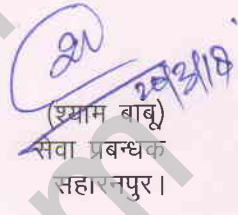 20/3/18
(श्याम बाबू)
सेवा प्रबन्धक
सहारनपुर।